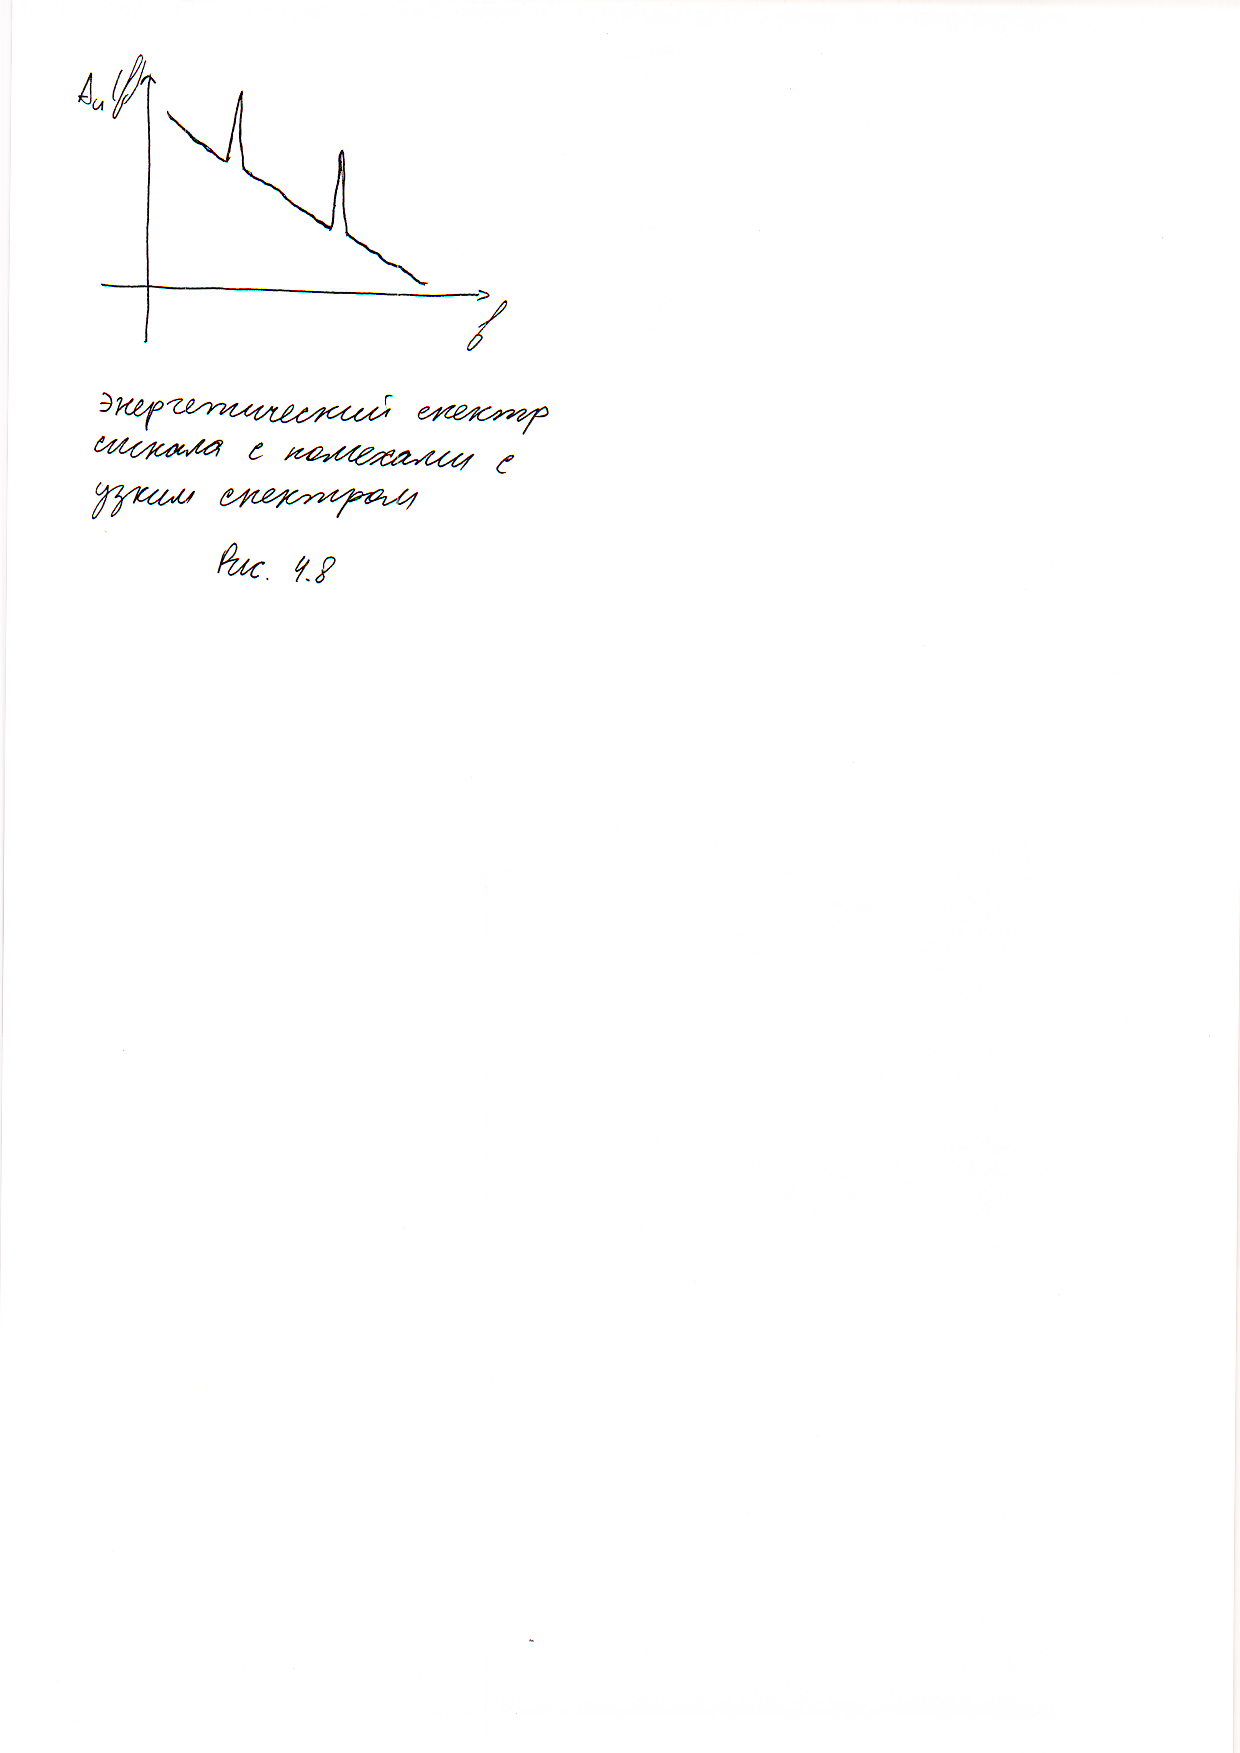 Aи(f)
f
энергетический спектр
сигнала с помехами с
узким спектром
Рис. 4.8